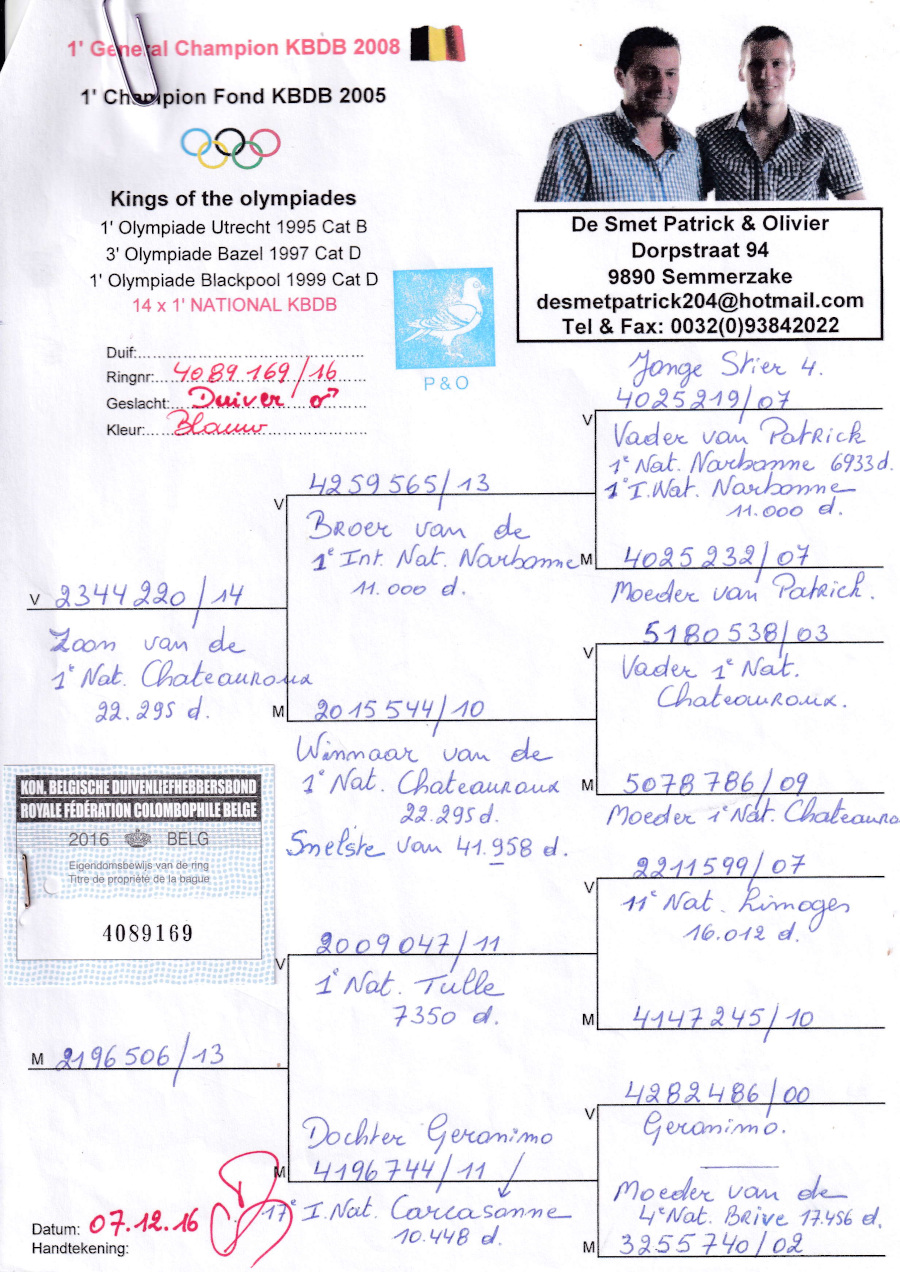 1' General Champion KBDB 2008
1' Champion Fond KBDB 2005
Kings of the olympiades
1' Olympiade Utrecht 1995 Cat B
3' Olympiade Bazel 1997 Cat D
1' Olympiade Blackpool 1999 Cat D
14 x 1' NATIONAL KBDB
De Smet Patrick & Olivier
Dorpstraat 94
9890 Semmerzake
desmetpatrick204@hotmail.com
Tel & Fax: 0032(0)93842022
P & O
Duif:
Ringnr: 4089169/16
Geslacht: Duiver ♂
Kleur: Blauw
Jonge Stier 4.
V 4025219/07
Vader van Patrick
1e Nat. Narbonne 6933 d.
1e I.Nat. Narbonne
11.000 d.
V 4259565/13
Broer van de
1e Int. Nat. Narbonne
11.000 d.
M 4025232/07
Moeder van Patrick.
V 2344220/14
Zoon van de
1e Nat. Chateauroux
22.295 d.
V 5180538/03
Vader 1e Nat.
Chateauroux.
M 2015544/10
Winnaar van de
1e Nat. Chateauroux
22.295 d.
Snelste van 41.958 d.
M 5078786/09
Moeder 1e Nat. Chateauro
KON. BELGISCHE DUIVENLIEFHEBBERSBOND
ROYALE FÉDÉRATION COLOMBOPHILE BELGE
2016 BELG
Eigendomsbewijs van de ring
Titre de propriété de la bague
4089169
V 2211599/07
11e Nat. Limoges
16.012 d.
V 2009047/11
1e Nat. Tulle
7350 d.
M 4147245/10
M 2196506/13
V 4282486/00
Geronimo.
Dochter Geronimo
M 4196744/11
17e I.Nat. Carcasonne
10.448 d.
Moeder van de
4e Nat. Brive 17.456 d.
M 3255740/02
Datum: 07.12.16
Handtekening: